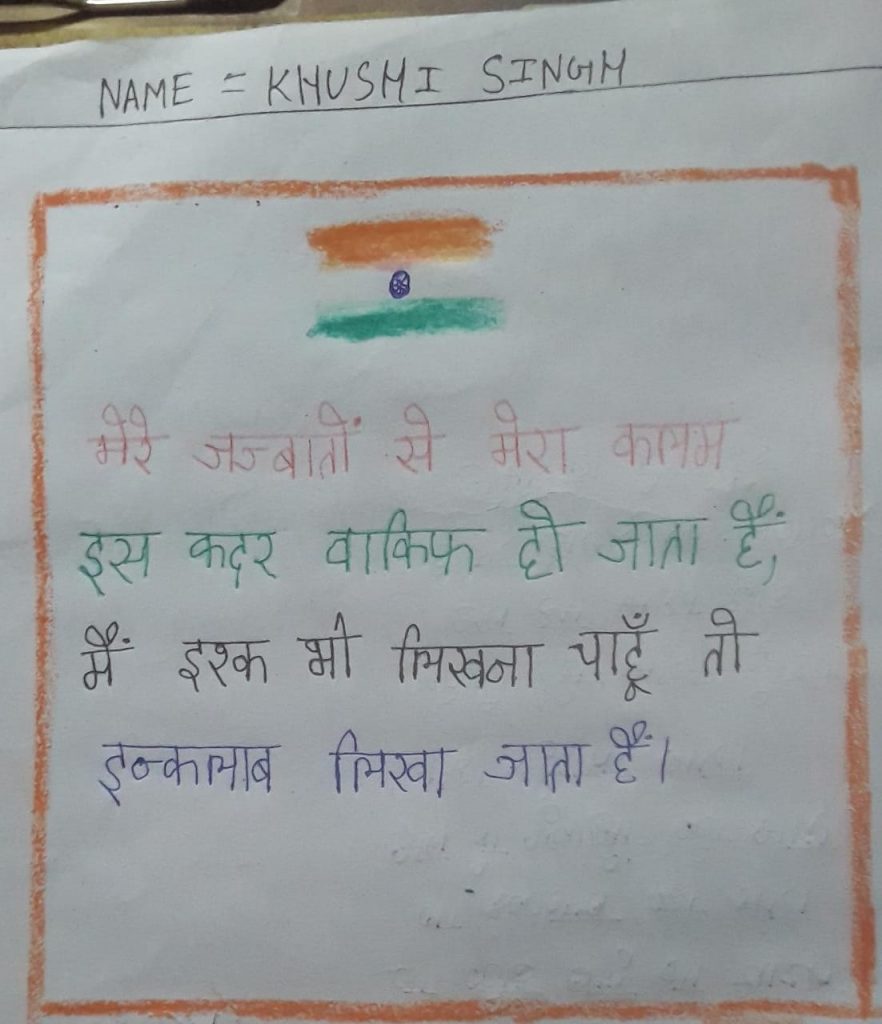 NAME = KHUSHI SINGH
मेरे जज्बातों से मेरा कालम
इस कदर वाकिफ हो जाता हैं,
मैं इश्क भी लिखना चाहूँ तो
इन्कालाब लिखा जाता हैं।